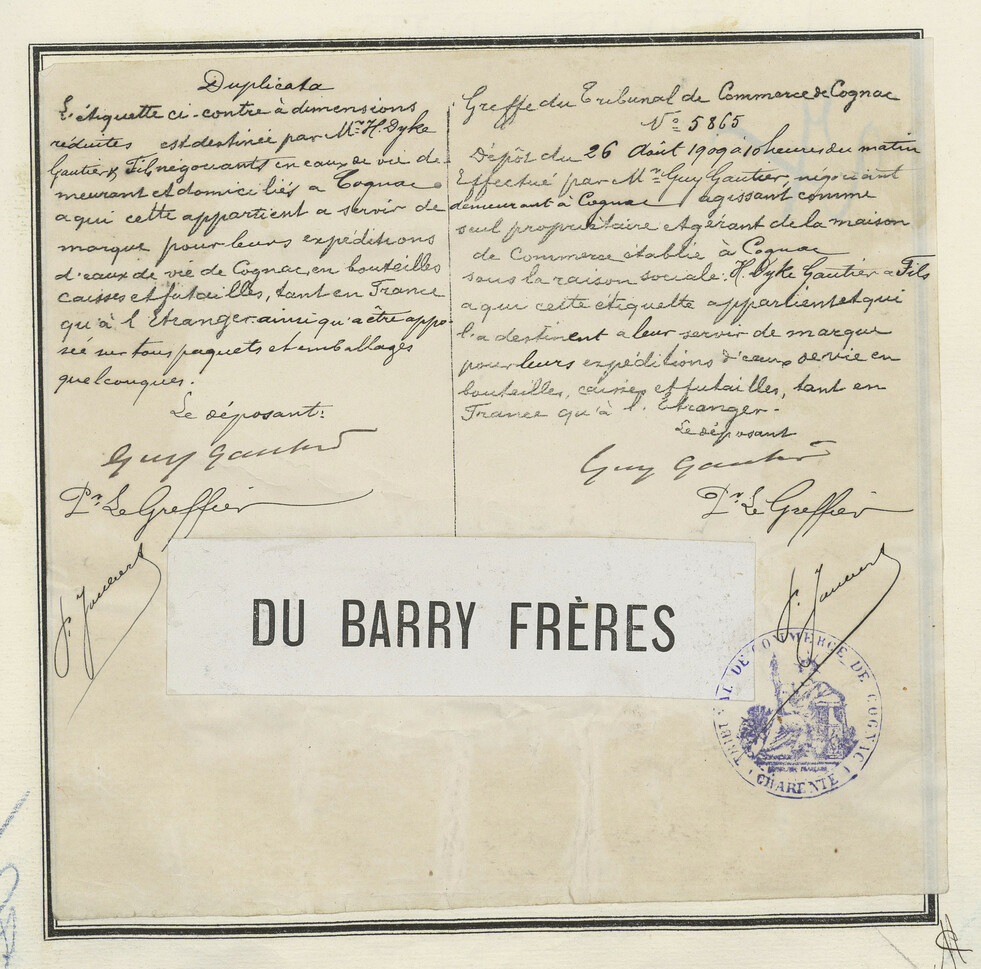 Duplicata
L'étiquette ci-contre à dimensions
réduites est destinée par Mr H. Dyke
Gautier & Fils négociants en eaux de vie de-
meurant et domiciliés a Cognac
a qui cette appartient a servir de
marque pour leurs expéditions
d'eaux de vie de Cognac, en bouteilles
caisses et futailles, tant en France
qu'à l'Etranger ainsi qu'a etre appo-
sée sur tous paquets et emballages
quelconques.
Le déposant:
Guy Gautier
Pr Le Greffier
Greffe du Tribunal de Commerce de Cognac
No 5865
Dépôt du 26 Août 1909 a 10 heures du matin
Effectué par Mr Guy Gautier, négociant
demeurant à Cognac agissant comme
seul propriétaire et gérant de la maison
de Commerce établie à Cognac
sous la raison sociale: H. Dyke Gautier & Fils
a qui cette étiquette appartient et qui
l'a destinent a leur servir de marque
pour leurs expéditions d'eaux de vie en
bouteilles, caisses et futailles, tant en
France qu'à l'Etranger.
Le déposant
Guy Gautier
Pr Le Greffier
DU BARRY FRÈRES
TRIBUNAL DE COMMERCE DE COGNAC
CHARENTE